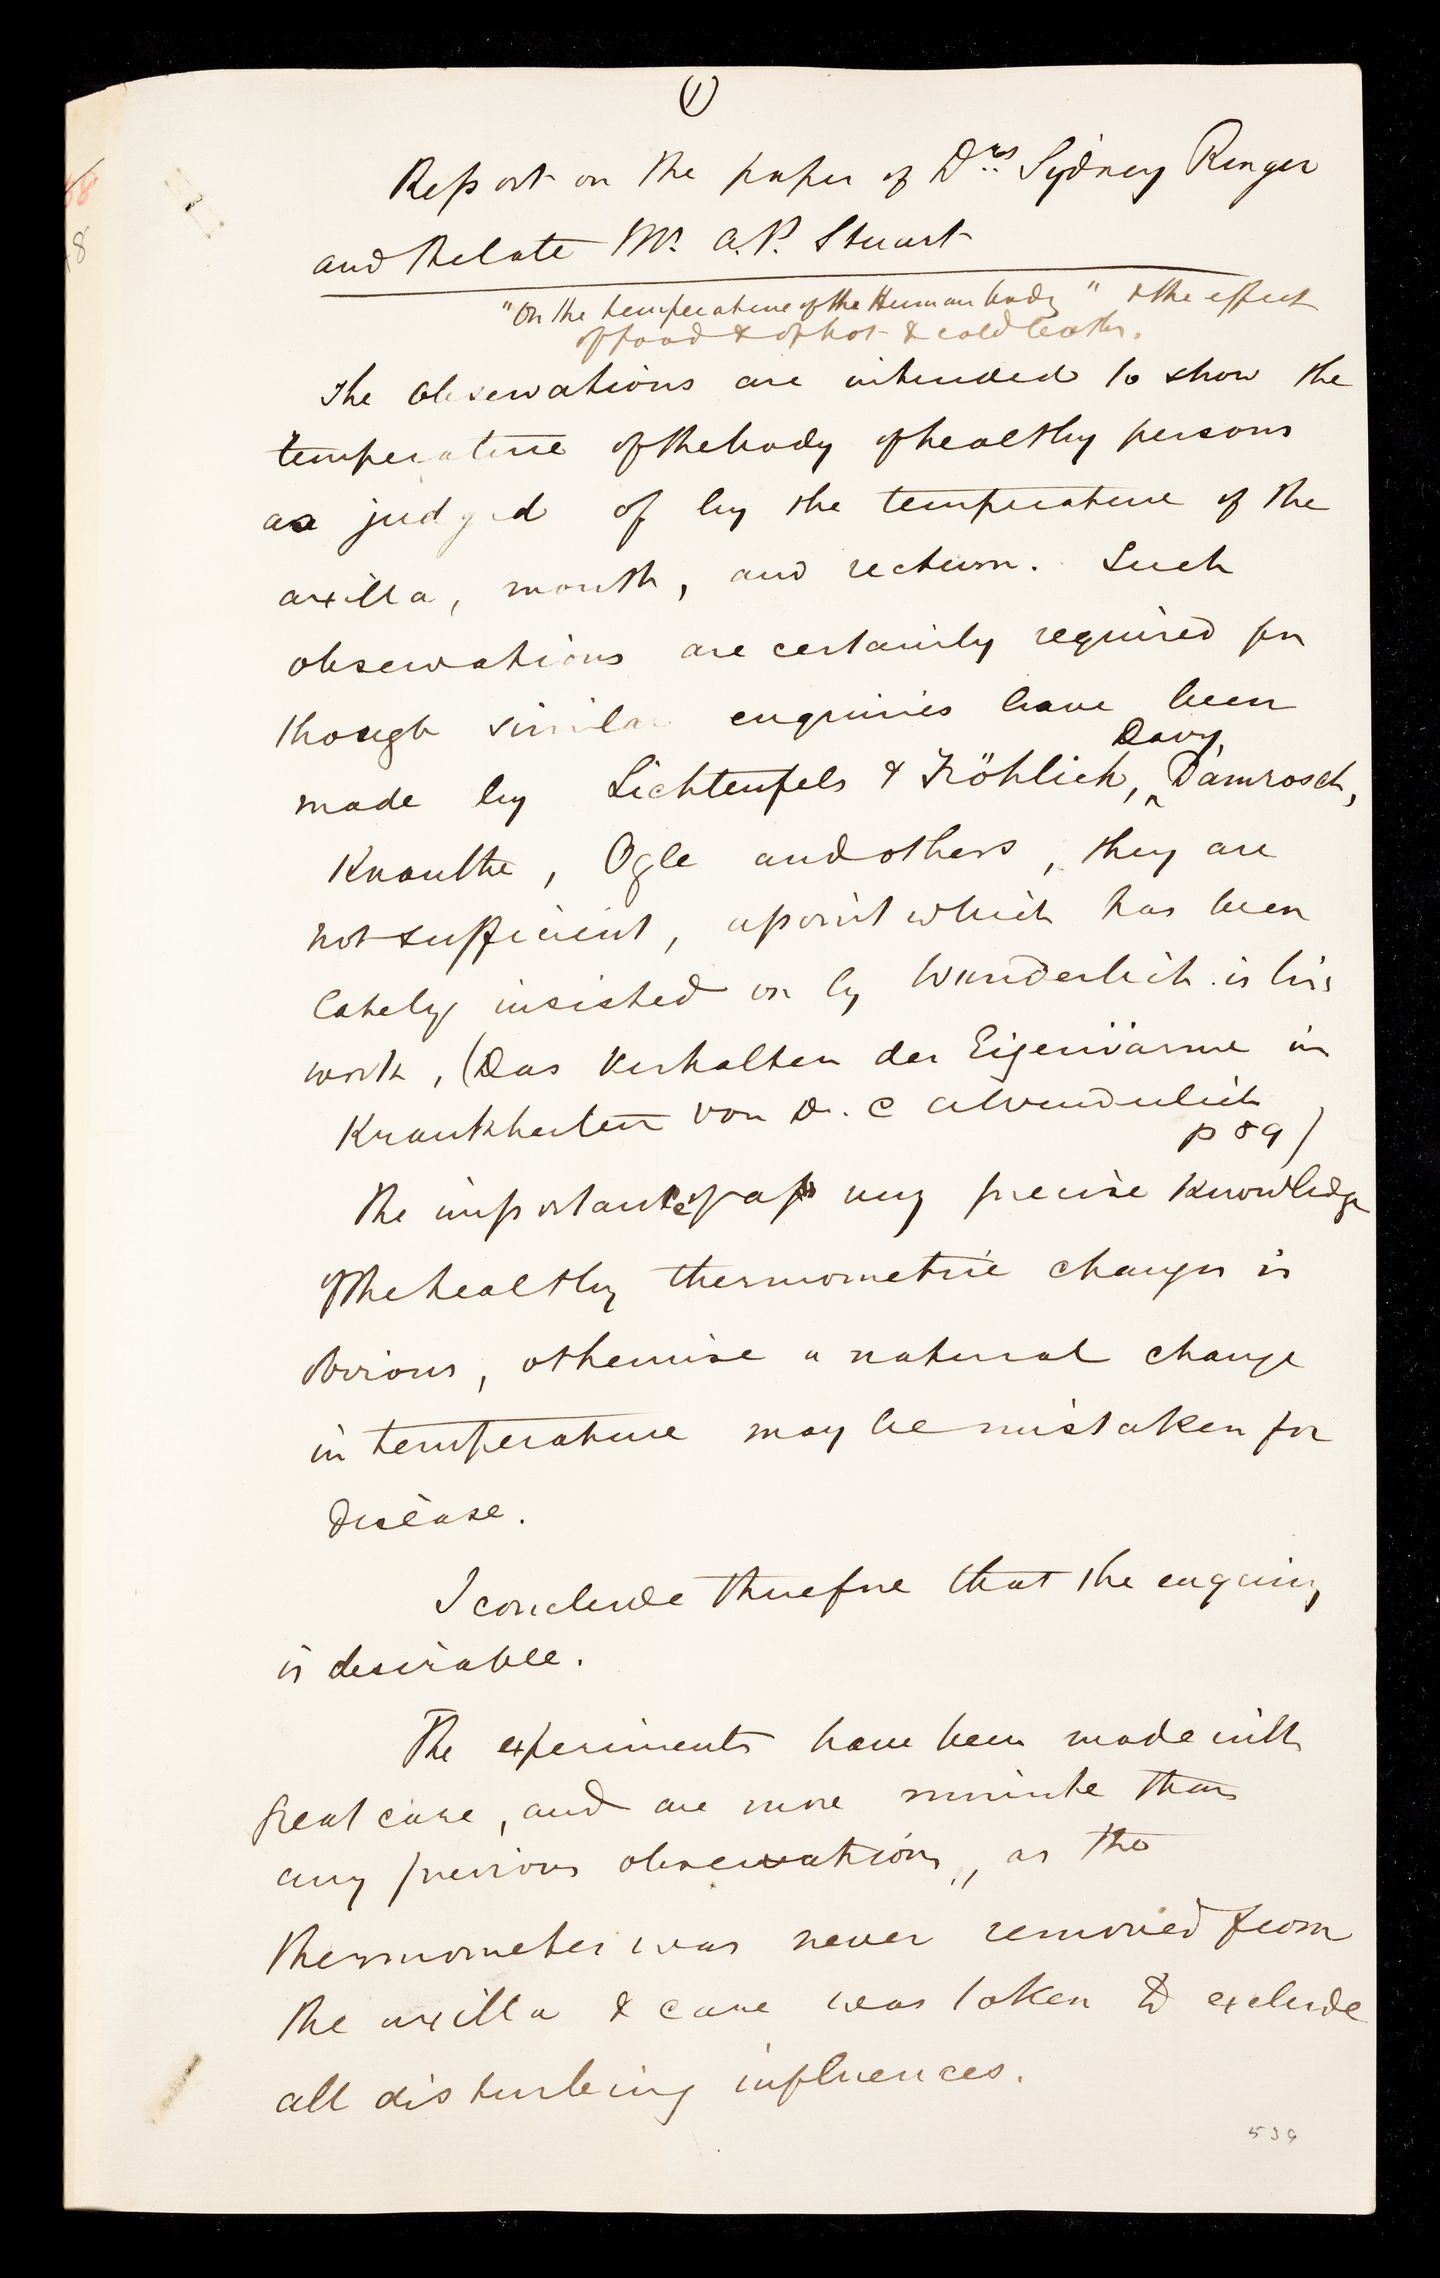 (1)
Report on the paper of Drs Sydney Ringer
and the late Mr. A.P. Stuart
"On the temperature of the Human body" & the effect
of food & of hot & cold baths.
The observations are intended to show the
temperature of the body of healthy persons
as judged of by the temperature of the
axilla, mouth, and rectum. Such
observations are certainly required for
though similar enquiries have been
Davy,
made by Lichtenfels & Fröhlich, ^ Damrosch,
Knauthe, Ogle and others, they are
not sufficient, a point which has been
lately insisted on by Wunderlich in his
work, (Das Verhalten der Eigenwärme in
Krankheiten von Dr. C A Wunderlich
p 89)
The importance of a very precise knowledge
of the healthy thermometric changes is
obvious, otherwise a natural change
in temperature may be mistaken for
disease.
I conclude therefore that the enquiry
is desirable.
The experiments have been made with
great care, and are more minute than
any previous observations, as the
thermometer was never removed from
the axilla & care was taken to exclude
all disturbing influences.
539